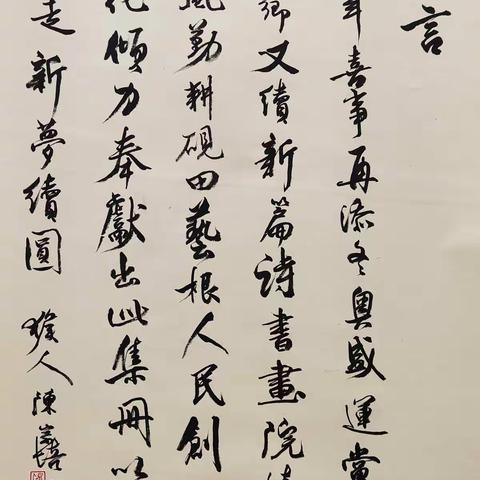 言
年喜事再添冬奥盛運當
卿又續新篇詩書畫院
風勤耕硯田藝根人民創
化傾力奉獻出此集冊以
走新夢續圓 猴人陳